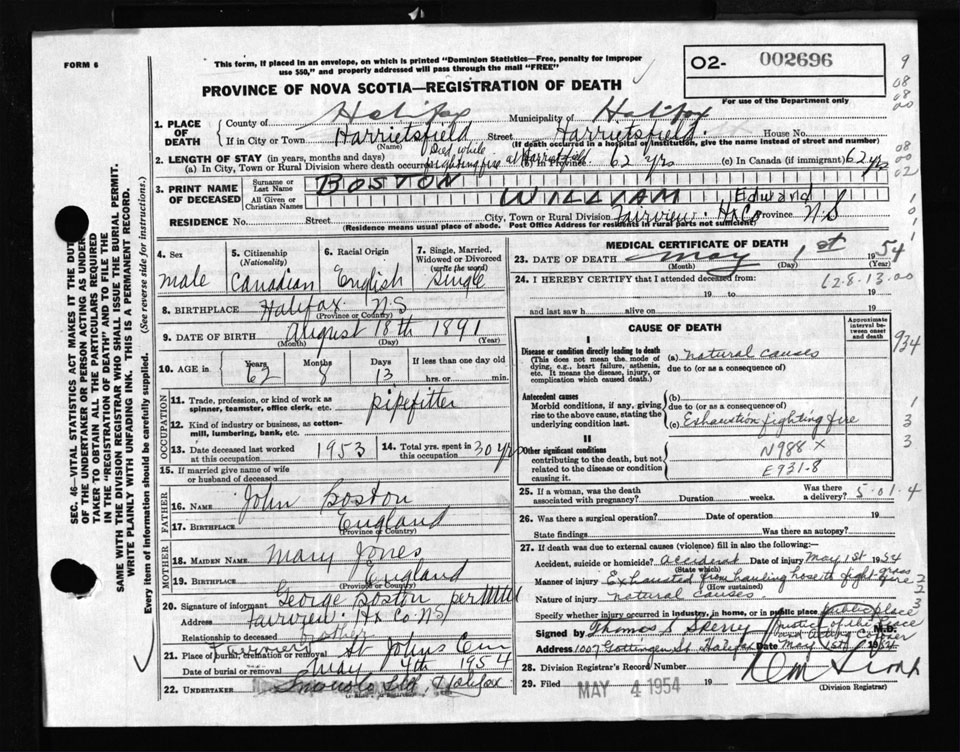 FORM 6
This form, if placed in an envelope, on which is printed "Dominion Statistics—Free, penalty for improper
use $50," and properly addressed will pass through the mail "FREE"
O2- 002696
For use of the Department only
PROVINCE OF NOVA SCOTIA—REGISTRATION OF DEATH
1. PLACE OF DEATH
County of Halifax Municipality of Halifax
If in City or Town Harrietsfield Street Harrietsfield. House No.
(Name) (If death occurred in a hospital or institution, give the name instead of street and number)
2. LENGTH OF STAY (in years, months and days) Died while
(a) In City, Town or Rural Division where death occurred fighting fire at Harrietsfield (b) In Province 62 yrs (c) In Canada (if immigrant) 62 yrs
3. PRINT NAME OF DECEASED
Surname or Last Name BOSTON
All Given or Christian Names WILLIAM Edward
RESIDENCE No. Street City, Town or Rural Division Fairview. Hx Co Province N.S
(Residence means usual place of abode. Post Office Address for residents in rural parts not sufficient)
4. Sex male
5. Citizenship (Nationality) Canadian
6. Racial Origin English
7. Single, Married, Widowed or Divorced (write the word) Single
8. BIRTHPLACE Halifax N.S
(Province or Country)
9. DATE OF BIRTH August 18th 1891
(Month) (Day) (Year)
10. AGE in Years 62 Months 8 Days 13 If less than one day old
hrs. or min.
OCCUPATION
11. Trade, profession, or kind of work as spinner, teamster, office clerk, etc. pipefitter
12. Kind of industry or business, as cotton-mill, lumbering, bank, etc.
13. Date deceased last worked at this occupation 1953 14. Total yrs. spent in this occupation 30 yrs
15. If married give name of wife or husband of deceased
FATHER
16. NAME John Boston
17. BIRTHPLACE England
(Province or Country)
MOTHER
18. MAIDEN NAME Mary Jones
19. BIRTHPLACE England
(Province or Country)
20. Signature of informant George Boston per
Address Fairview Hx Co. NS
Relationship to deceased brother
21. Place of burial, cremation or removal St Johns Cem
Date of burial or removal May 4th 1954
22. UNDERTAKER Halifax
MEDICAL CERTIFICATE OF DEATH
23. DATE OF DEATH May 1st 1954
(Month) (Day) (Year)
24. I HEREBY CERTIFY that I attended deceased from:
12.8.13.00
19 to 19
and last saw h alive on 19
CAUSE OF DEATH
Approximate interval between onset and death
I
Disease or condition directly leading to death
(This does not mean the mode of dying, e.g., heart failure, asthenia, etc. It means the disease, injury, or complication which caused death.)
(a) natural causes
due to (or as a consequence of)
Antecedent causes
Morbid conditions, if any, giving rise to the above cause, stating the underlying condition last.
(b)
due to (or as a consequence of)
(c) Exhaustion fighting fire
II
Other significant conditions
contributing to the death, but not related to the disease or condition causing it.
N988 X
E931-8
934
25. If a woman, was the death associated with pregnancy? Duration weeks. Was there a delivery? 5-01.4
26. Was there a surgical operation? Date of operation 19
State findings Was there an autopsy?
27. If death was due to external causes (violence) fill in also the following:—
Accident, suicide or homicide? accident Date of injury May 1st 1954
(State which)
Manner of injury Exhausted from hauling hose to fight grass fire
(How sustained)
Nature of injury natural causes
Specify whether injury occurred in industry, in home, or in public place public place
Signed by Thomas S Sperry Justice of the peace and Acting Coroner M.D.
Address 1007 Gottingen St. Halifax Date May 1st 1954
28. Division Registrar's Record Number
29. Filed MAY 4 1954 19
(Division Registrar)
SEC. 46—VITAL STATISTICS ACT MAKES IT THE DUTY
OF THE UNDERTAKER OR PERSON ACTING AS UNDER-
TAKER TO OBTAIN ALL THE PARTICULARS REQUIRED
IN THE "REGISTRATION OF DEATH" AND TO FILE THE
SAME WITH THE DIVISION REGISTRAR WHO SHALL ISSUE THE BURIAL PERMIT.
WRITE PLAINLY WITH UNFADING INK. THIS IS A PERMANENT RECORD.
Every item of information should be carefully supplied. (See reverse side for instructions.)